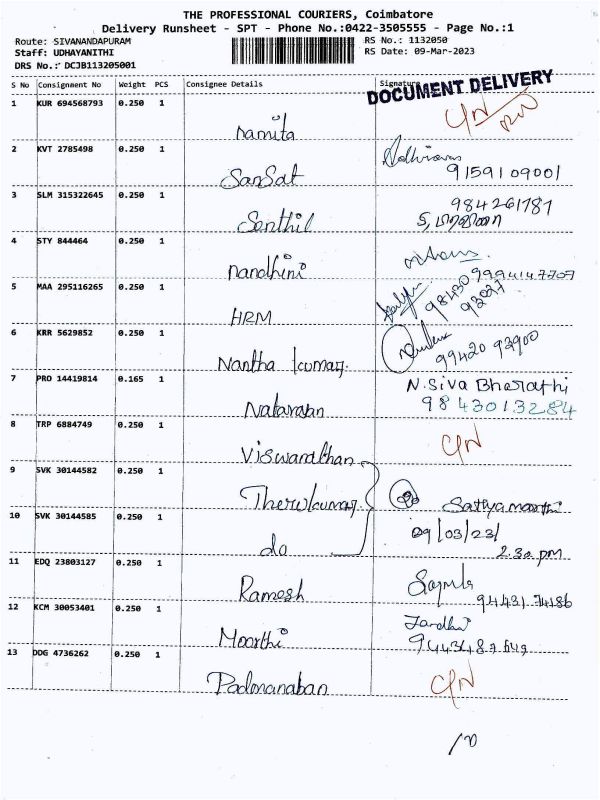 THE PROFESSIONAL COURIERS, Coimbatore
Delivery Runsheet - SPT - Phone No.:0422-3505555 - Page No.:1
Route: SIVANANDAPURAM
Staff: UDHAYANITHI
DRS No.: DCJB113205001
RS No.: 1132050
RS Date: 09-Mar-2023
S No Consignment No Weight PCS Consignee Details Signature
DOCUMENT DELIVERY
1 KUR 694568793 0.250 1
Namita
2 KVT 2785498 0.250 1
SanSat 9159109001
3 SLM 315322645 0.250 1 984261787
Senthil
4 STY 844464 0.250 1
Nandhini
5 MAA 295116265 0.250 1
HRM
6 KRR 5629852 0.250 1
Nantha kumar 99420 92900
7 PRO 14419814 0.165 1 N.Siva Bharathi
Natarajan 9843013284
8 TRP 6884749 0.250 1
Viswardhan
9 SVK 30144582 0.250 1
Therukumar Sathyamoorthi
10 SVK 30144585 0.250 1 09/03/23/
do 2.30 pm
11 EDQ 23803127 0.250 1
Ramesh 94431 74186
12 KCM 30053401 0.250 1
Moorthi
13 DDG 4736262 0.250 1
Padmanaban